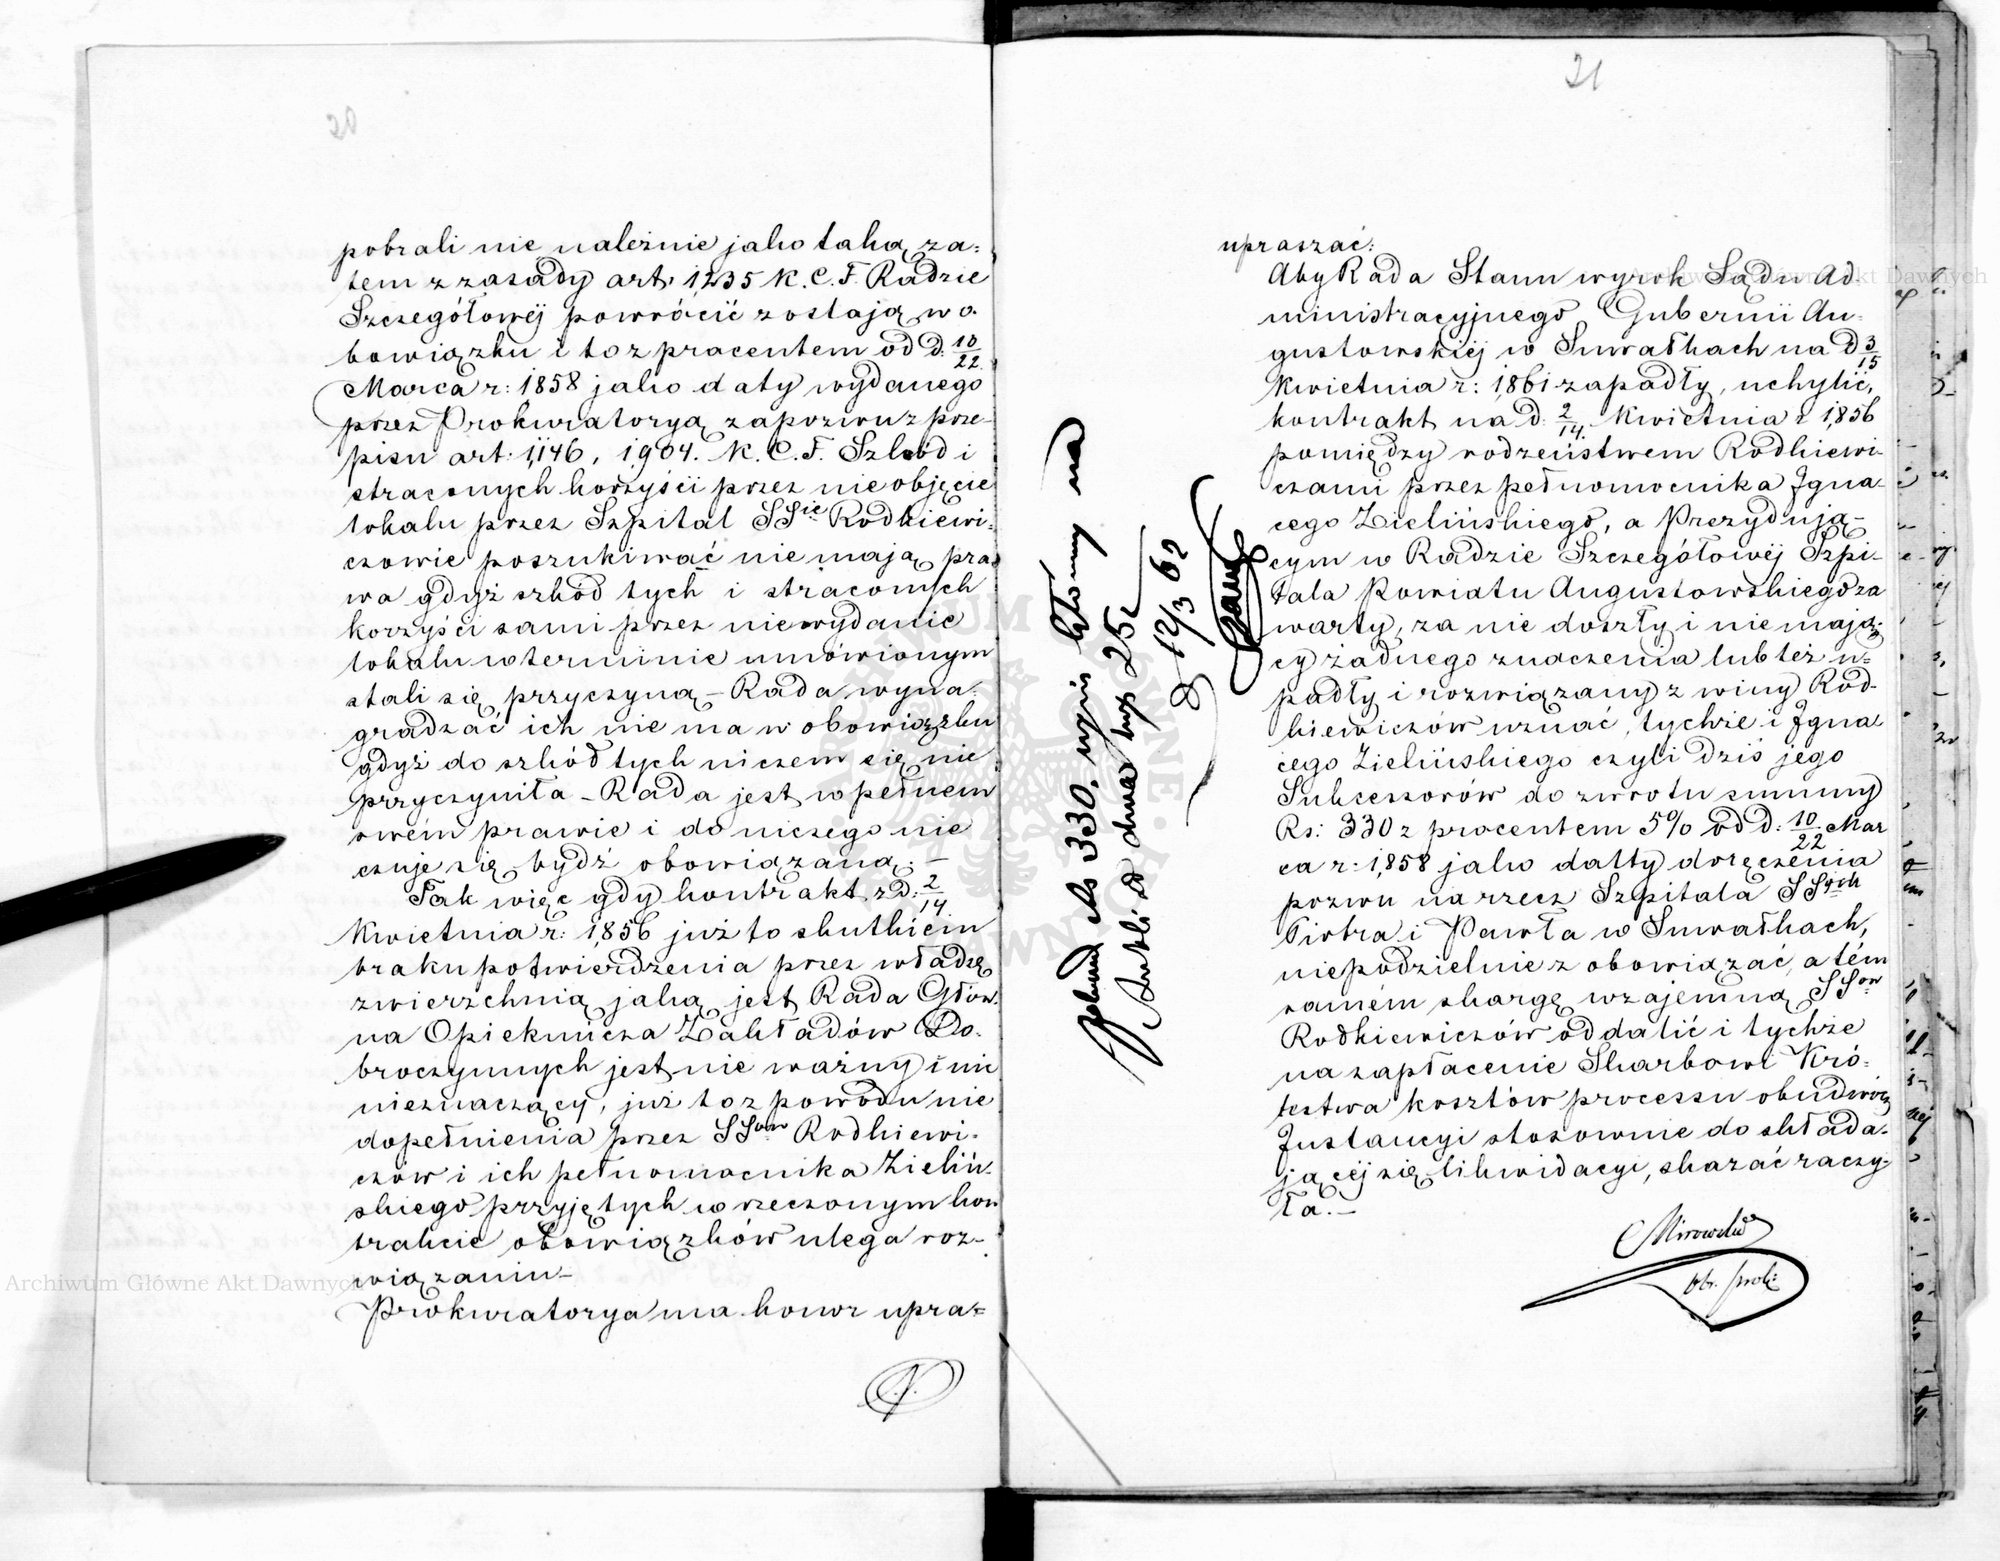 20
pobrali nie należnie jako taką za:
tem z zasady art. 1235 K. C. F. Radzie
Szczegółowéj powrócić zostają w o.
bowiązku i to z procentem od d: 10/22
Marca r: 1858 jako daty wydanego
przez Prokuratoryą zapozwu z prze-
pisu art: 1,146, 1,904. K. C. F. Szkód i
straconych korzyści przez nie objęcie
lokalu przez Szpital SSie Rodkiewi:
czowie poszukiwać nie mają pra
wa gdyż szkód tych i straconych
korzyści sami przez niewydanie
lokalu w terminie umówionym
stali się przyczyną – Rada wyna:
gradzać ich nie ma w obowiązku
gdyż do szkód tych niczem się nie
przyczyniła – Rada jest w pełnem
swém prawie i do niczego nie
czuje się bydź obowiązaną: –
Tak więc gdy kontrakt z d: 2/14
Kwietnia r: 1,856 już to skutkiem
braku potwierdzenia przez władzę
zwierzchnią jaką jest Rada Głów.
na Opiekuńcza Zakładów Do.
broczynnych jest nie ważny i nic
nieznaczący, już to z powodu nie
dopełnienia przez SSów Rodkiewi.
czów i ich pełnomocnika Zieliń.
skiego przyjętych w rzeczonym kon
trakcie obowiązków ulega roz-
wiązaniu –
Prokuratorya ma honor upra=
21
upraszać:
Aby Rada Stanu wyrok Sądu Ad.
ministracyjnego Gubernii Au-
gustowskiéj w Suwałkach na d 3/15
Kwietnia r: 1,861 zapadły, uchylić,
kontrakt na d: 2/14. Kwietnia r 1,856
pomiędzy rodzeństwem Rodkiewi-
czami przez pełnomocnika Igna-
cego Zielińskiego, a Prezydują-
cym w Radzie Szczegółowéj Szpi-
tala Powiatu Augustowskiego za
warty, za nie doszły i nie mają:
cy żadnego znaczenia lub też u=
padły i rozwiązany z winy Rod-
kiewiczów uznać, tychże i Igna
cego Zielińskiego czyli dziś jego
Sukcessorów do zwrotu summy
Rs: 330 z procentem 5% od d: 10/22 Mar
ca r: 1,858 jako datty doręczenia
pozwu na rzecz Szpitala SSych
Piotra i Pawła w Suwałkach,
niepodzielnie z obowiązać, a tém
samém skargę wzajemną SSów
Rodkiewiczów oddalić i tychże
na zapłacenie Skarbowi Kró:
lestwa kosztów processu obudwóch
Instancyi stosownie do składa.
jącéj się likwidacyi, skazać raczy-
ła. –
Mirowski
Ob. prok:
№ 330.
dwa kop 25
d 12/3 62
Archiwum Główne Akt Dawnych
Archiwum Główne Akt Dawnych